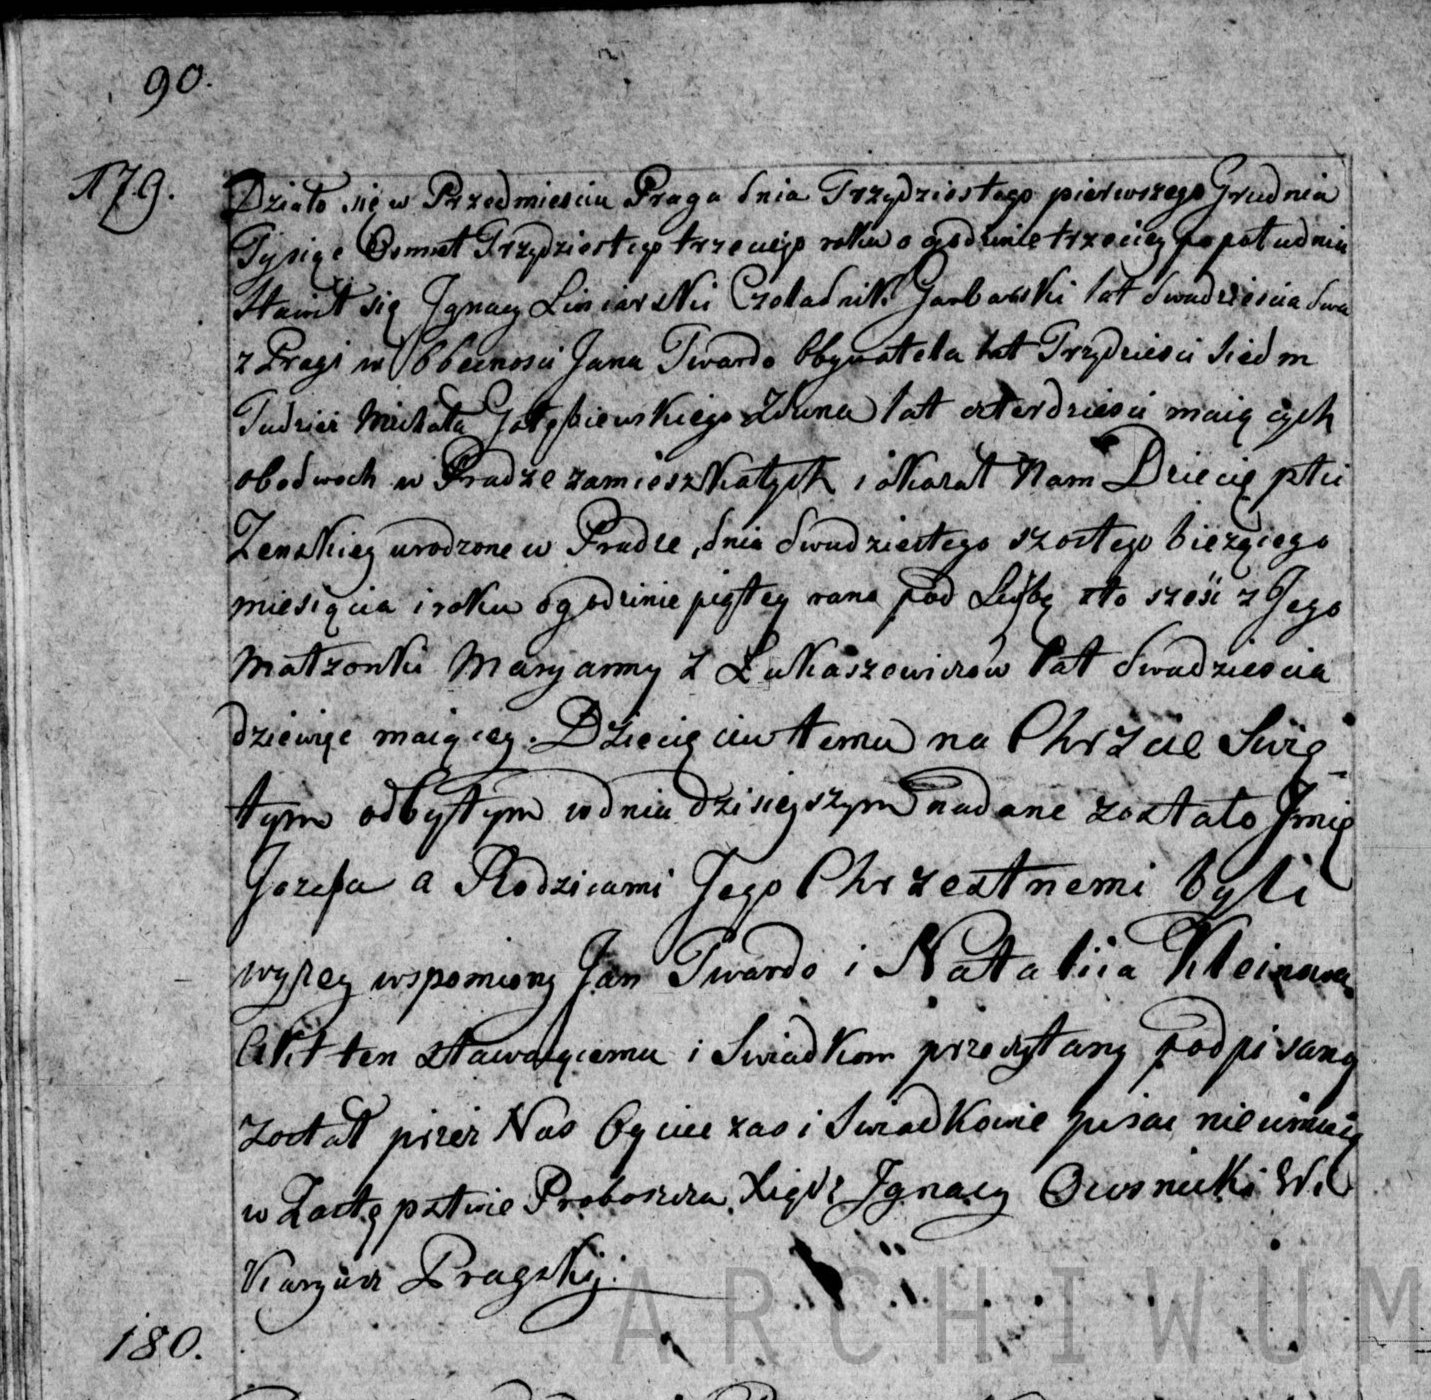 90.
179.
Działo się w Przedmiesciu Praga dnia Trzydziestego pierwszego Grudnia
Tysiąc Osmset Trzydziestego trzeciego roku o godzinie trzeciey po południu
Stawił się Jgnacy Liniarski Czeladnik Garbarski lat dwadziescia dwa
z Pragi w Obecnosci Jana Twardo Obywatela lat Trzydziesci siedm
Tudzież Michała Gołębiewskiego Zduna lat czterdziesci maiących
obodwoch w Pradze zamieszkałych i okazał Nam Dziecię płci
Zenskiey urodzone w Pradze, dnia dwudziestego szostego bieżącego
miesiąca i roku o godzinie piątey rano pod Liczbą sto szesc z Jego
Małzonki Maryanny z Łukaszewiczow lat dwadziescia
dziewięc maiącey. Dziecięciu temu na Chrzcie Swię
tym odbytym w dniu dzisieyszym nadane zostało Jmię
Jozefa a Rodzicami Jego Chrzestnemi byli
wyzey wspomiony Jan Twardo i Nataliia Kleinowa
Akt ten stawaiącemu i Swiadkom przeczytany podpisany
został przez Nas Oyciec zas i Swiadkowie pisac nieumieią
w Zastępstwie Proboszcza Xiądz Jgnacy
Karyusz Pragski.
180.
ARCHIWUM